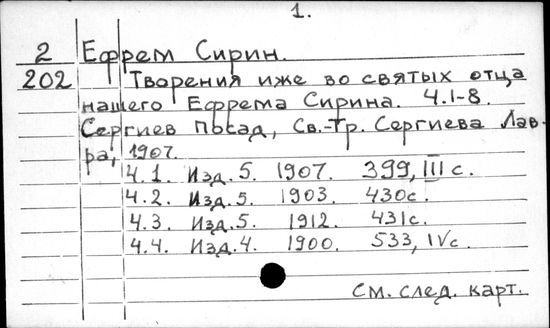 1.
2 Ефрем Сирин.
202 Творения иже во святых отца
нашего Ефрема Сирина. Ч.1-8.
Сергиев Посад, Св.-Тр. Сергиева Лав-
ра, 1907.
Ч.1. Изд.5. 1907. 399, III с.
Ч.2. Изд.5. 1903. 430с.
Ч.3. Изд.5. 1912. 431с.
Ч.4. Изд.4. 1900. 533, IVс.
См. след. карт.